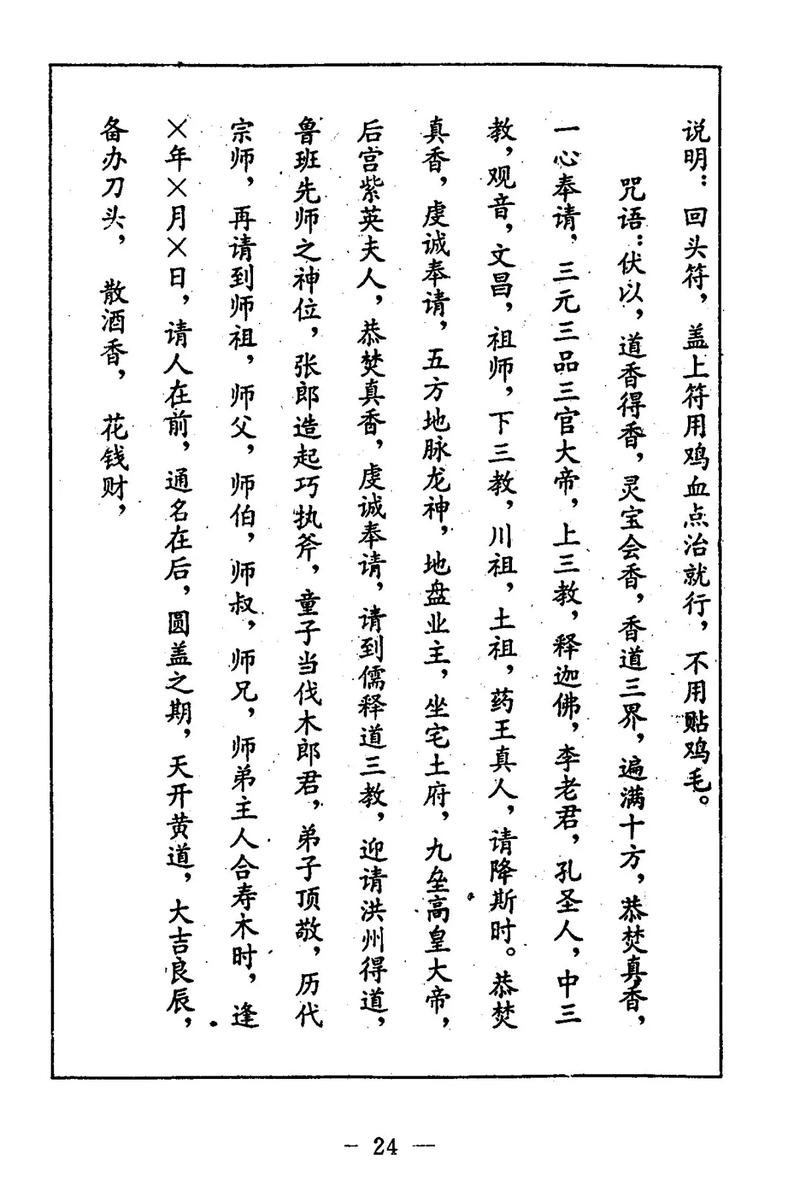 说明：回头符，盖上符用鸡血点治就行，不用贴鸡毛。
咒语：伏以，道香得香，灵宝会香，香道三界，遍满十方，恭焚真香，
一心奉请，三元三品三官大帝，上三教，释迦佛，李老君，孔圣人，中三
教，观音，文昌，祖师，下三教，川祖，土祖，药王真人，请降斯时。恭焚
真香，虔诚奉请，五方地脉龙神，地盘业主，坐宅土府，九垒高皇大帝，
后宫紫英夫人，恭焚真香，虔诚奉请，请到儒释道三教，迎请洪州得道，
鲁班先师之神位，张郎造起巧执斧，童子当伐木郎君，弟子顶敬，历代
宗师，再请到师祖，师父，师伯，师叔，师兄，师弟主人合寿木时，逢
×年×月×日，请人在前，通名在后，圆盖之期，天开黄道，大吉良辰，
备办刀头，散酒香，花钱财，
— 24 —